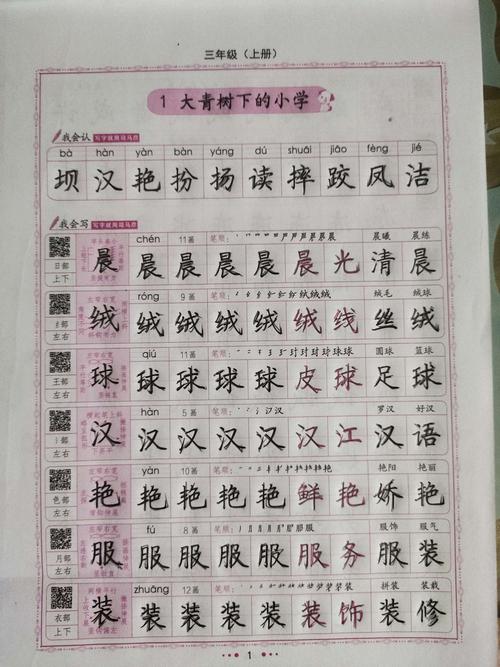 三年级（上册）
1 大青树下的小学
我会认 写字就用司马彦
bà hàn yàn bàn yáng dú shuāi jiāo fèng jié
坝 汉 艳 扮 扬 读 摔 跤 凤 洁
我会写 写字就用司马彦
chén 11画 笔顺： 晨曦 晨练
日部
上下
晨 晨 晨 晨 晨 晨 光 清 晨
róng 9画 笔顺： 绒毛 绒球
左右
绒 绒 绒 绒 绒 绒 线 丝 绒
qiú 11画 笔顺： 圆球 篮球
王部
左右
球 球 球 球 球 皮 球 足 球
hàn 5画 笔顺： 罗汉 好汉
左右
汉 汉 汉 汉 汉 汉 江 汉 语
yàn 10画 笔顺： 艳阳 艳丽
色部
左右
艳 艳 艳 艳 艳 鲜 艳 娇 艳
fú 8画 笔顺： 服饰 服气
月部
左右
服 服 服 服 服 服 务 服 装
zhuāng 12画 笔顺： 拼装 装载
衣部
上下
装 装 装 装 装 装 饰 装 修
1